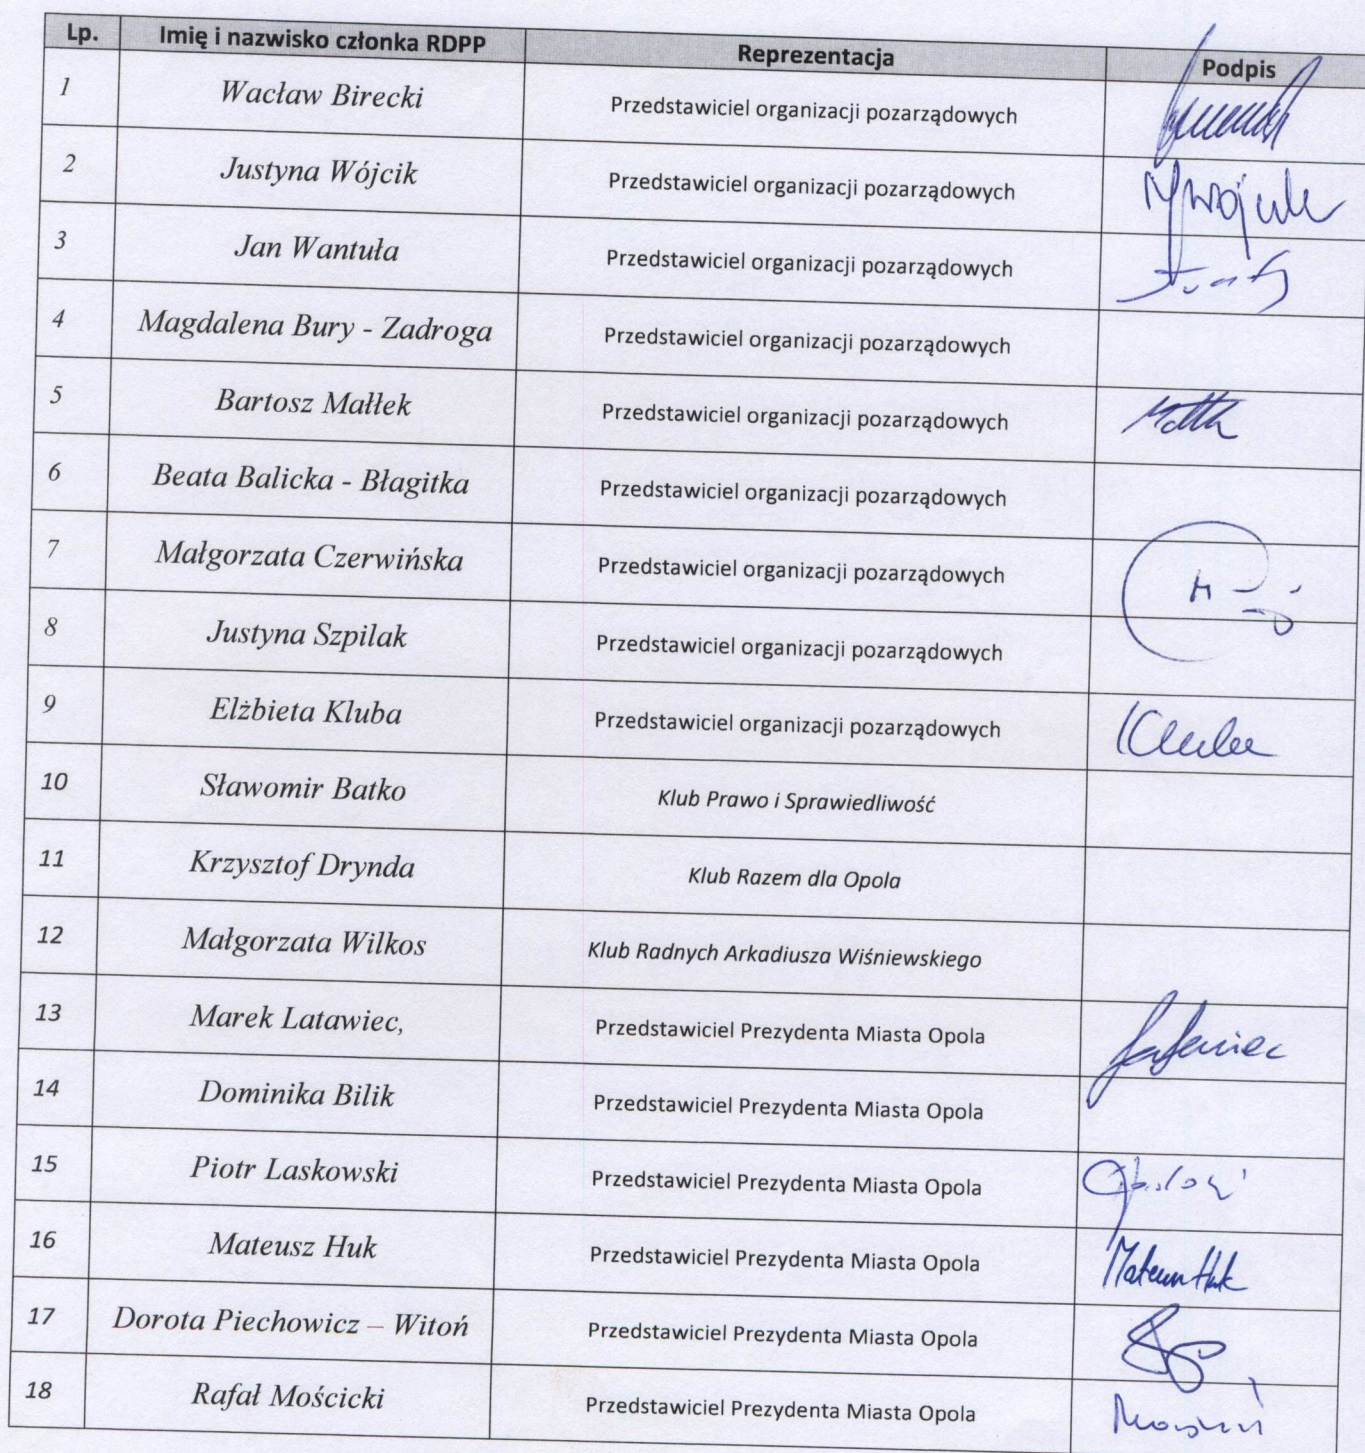 Lp. Imię i nazwisko członka RDPP Reprezentacja Podpis
1 Wacław Birecki Przedstawiciel organizacji pozarządowych
2 Justyna Wójcik Przedstawiciel organizacji pozarządowych
3 Jan Wantuła Przedstawiciel organizacji pozarządowych
4 Magdalena Bury - Zadroga Przedstawiciel organizacji pozarządowych
5 Bartosz Małłek Przedstawiciel organizacji pozarządowych
6 Beata Balicka - Błagitka Przedstawiciel organizacji pozarządowych
7 Małgorzata Czerwińska Przedstawiciel organizacji pozarządowych
8 Justyna Szpilak Przedstawiciel organizacji pozarządowych
9 Elżbieta Kluba Przedstawiciel organizacji pozarządowych Kluba
10 Sławomir Batko Klub Prawo i Sprawiedliwość
11 Krzysztof Drynda Klub Razem dla Opola
12 Małgorzata Wilkos Klub Radnych Arkadiusza Wiśniewskiego
13 Marek Latawiec, Przedstawiciel Prezydenta Miasta Opola Latawiec
14 Dominika Bilik Przedstawiciel Prezydenta Miasta Opola
15 Piotr Laskowski Przedstawiciel Prezydenta Miasta Opola
16 Mateusz Huk Przedstawiciel Prezydenta Miasta Opola Mateusz Huk
17 Dorota Piechowicz – Witoń Przedstawiciel Prezydenta Miasta Opola
18 Rafał Mościcki Przedstawiciel Prezydenta Miasta Opola